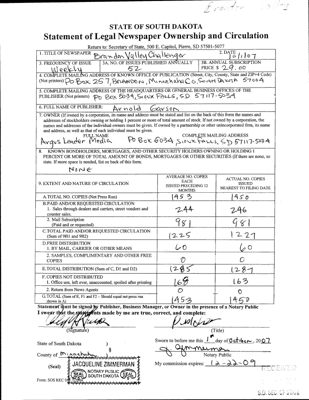 STATE OF SOUTH DAKOTA
Statement of Legal Newspaper Ownership and Circulation
Return to: Secretary of State, 500 E. Capitol, Pierre, SD 57501-5077
1. TITLE OF NEWSPAPER Brandon Valley Challenger
2. DATE 10/1/07
3. FREQUENCY OF ISSUE Weekly
3A. NO. OF ISSUES PUBLISHED ANNUALLY 52
3B. ANNUAL SUBSCRIPTION PRICE $ 29.00
4. COMPLETE MAILING ADDRESS OF KNOWN OFFICE OF PUBLICATION (Street, City, County, State and ZIP+4 Code)
(Not printers) PO Box 257, Brandon, Minnehaha Co, South Dakota 57004
5. COMPLETE MAILING ADDRESS OF THE HEADQUARTERS OR GENERAL BUSINESS OFFICES OF THE
PUBLISHER (Not printers) PO Box 5034, Sioux Falls, SD 57117-5034
6. FULL NAME OF PUBLISHER: Arnold Garson
7. OWNER (If owned by a corporation, its name and address must be stated and list on the back of this form the names and
addresses of stockholders owning or holding 1 percent or more of total amount of stock. If not owned by a corporation, the
names and addresses of the individual owners must be given. If owned by a partnership or other unincorporated firm, its name
and address, as well as that of each individual must be given.
FULL NAME COMPLETE MAILING ADDRESS
Argus Leader Media PO Box 5034, Sioux Falls, SD 57117-5034
8. KNOWN BONDHOLDERS, MORTGAGES, AND OTHER SECURITY HOLDERS OWNING OR HOLDING 1
PERCENT OR MORE OF TOTAL AMOUNT OF BONDS, MORTGAGES OR OTHER SECURITIES (If there are none, so
state. If more space is needed, list on back of this form.
NONE
9. EXTENT AND NATURE OF CIRCULATION
AVERAGE NO. COPIES EACH ISSUED PRECEDING 12 MONTHS
ACTUAL NO. COPIES ISSUED NEAREST TO FILING DATE
A. TOTAL NO. COPIES (Net Press Run) 1453 1450
B. PAID AND/OR REQUESTED CIRCULATION
1. Sales through dealers and carriers, street vendors and counter sales. 244 246
2. Mail Subscription (Paid and or requested) 981 981
C. TOTAL PAID AND/OR REQUESTED CIRCULATION (Sum of 9B1 and 9B2) 1225 1227
D. FREE DISTRIBUTION
1. BY MAIL, CARRIER OR OTHER MEANS 60 60
2. SAMPLES, COMPLIMENTARY AND OTHER FREE COPIES 0 0
E. TOTAL DISTRIBUTION (Sum of C, D1 and D2) 1285 1287
F. COPIES NOT DISTRIBUTED
1. Office use, left over, unaccounted, spoiled after printing 168 163
2. Return from News Agents 0 0
G. TOTAL (Sum of E, F1 and F2 - Should equal net press run shown in A) 1453 1450
Statement must be signed by Publisher, Business Manager, or Owner in the presence of a Notary Public
I swear that the statements made by me are true, correct, and complete:
(Signature) (Title)
State of South Dakota )
County of Minnehaha )
Sworn to before me this 1st day of October, 2007
J Zimmerman
Notary Public
(Seal)
JACQUELINE ZIMMERMAN
SEAL NOTARY PUBLIC SOUTH DAKOTA SEAL
My commission expires: 12-22-09